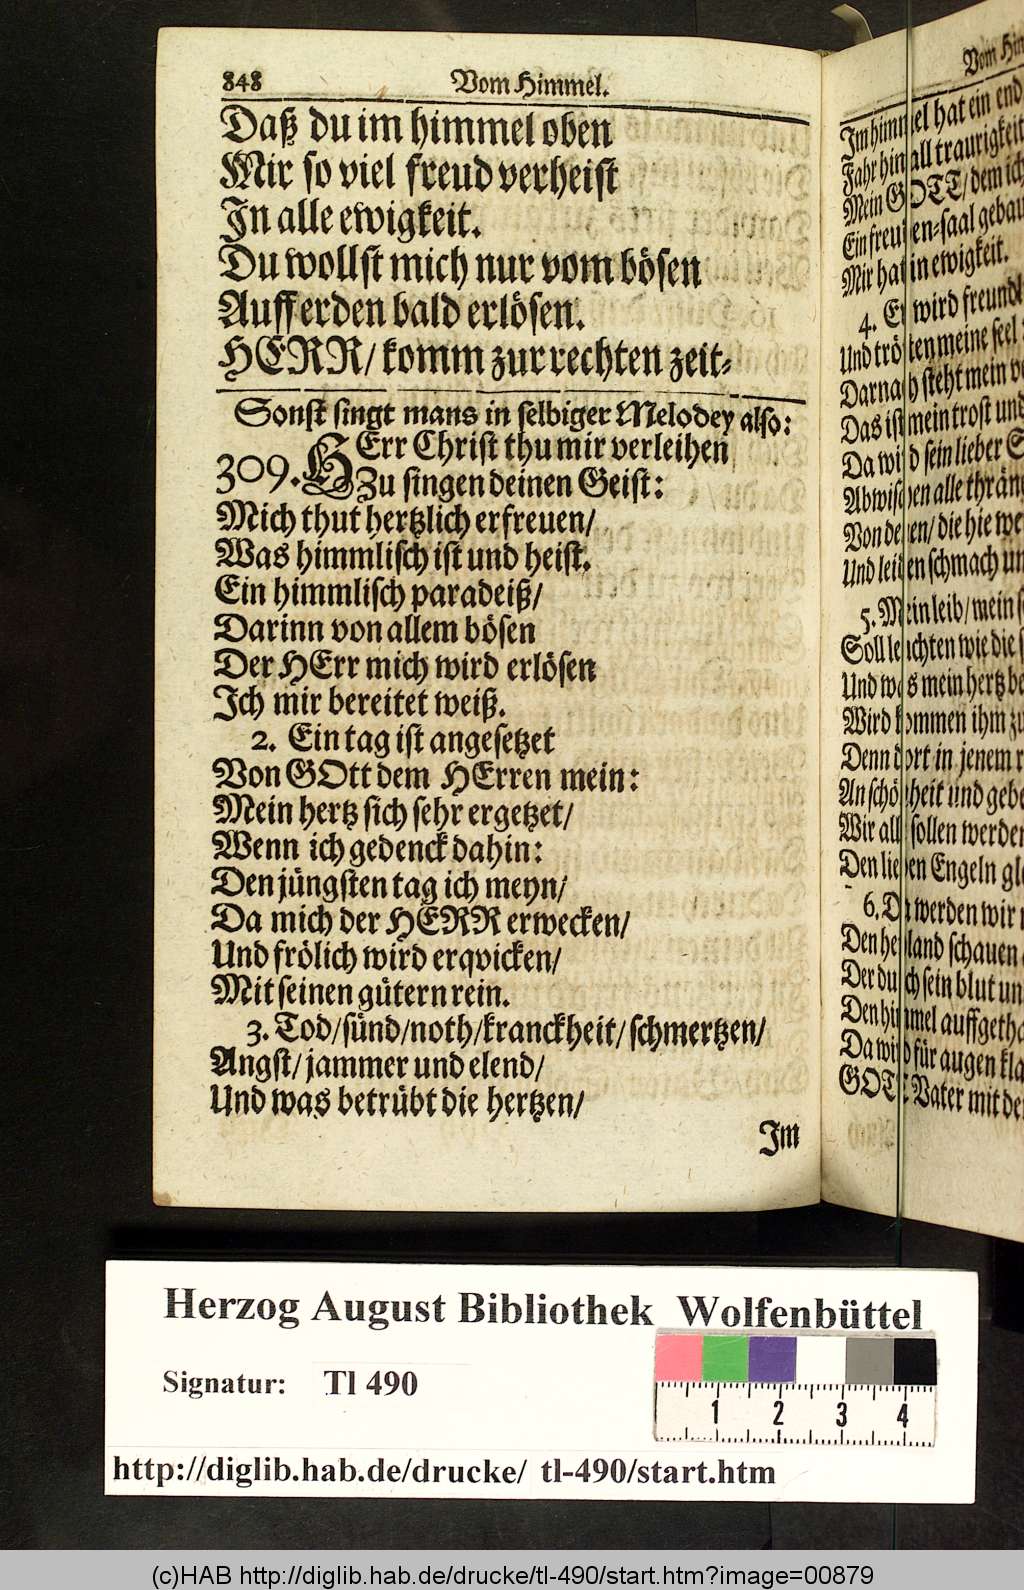 848
Vom Himmel.
Daß du im himmel oben
Mir so viel freud verheist
In alle ewigkeit.
Du wollst mich nur vom bösen
Auff erden bald erlösen.
HERR/ komm zur rechten zeit⸗
Sonst singt mans in selbiger Melodey also:
309. HErr Christ thu mir verleihen
Zu singen deinen Geist:
Mich thut hertzlich erfreuen/
Was himmlisch ist und heist.
Ein himmlisch paradeiß/
Darinn von allem bösen
Der HErr mich wird erlösen
Ich mir bereitet weiß.
2. Ein tag ist angesetzet
Von GOtt dem HErren mein:
Mein hertz sich sehr ergetzet/
Wenn ich gedenck dahin:
Den jüngsten tag ich meyn/
Da mich der HERR erwecken/
Und frölich wird erqvicken/
Mit seinen gütern rein.
3. Tod/sünd/noth/kranckheit/schmertzen/
Angst/ jammer und elend/
Und was betrübt die hertzen/
Im
Vom
Im himmel hat ein end
Fahr hin all traurigkeit
Mein GOTT/ dem ich
Ein freuden⸗saal
Mir hat in ewigkeit.
4. Er wird
Und trösten meine seel
Darnach steht mein
Das ist mein trost und
Da wird sein lieber
Abwischen alle
Von denen/ die hie
Und leiden schmach
5. Mein leib/ mein
Soll leuchten wie die
Und was mein hertz
Wird kommen ihm
Denn dort in jenem
An schönheit und
Wir all sollen werden
Den lieben Engeln
6. Da werden wir
Den heyland schauen
Der durch sein blut
Den himmel
Da wird für augen
GOTT Vater mit
Herzog August Bibliothek Wolfenbüttel
Signatur: Tl 490
1 2 3 4
http://diglib.hab.de/drucke/ tl-490/start.htm
(c)HAB http://diglib.hab.de/drucke/tl-490/start.htm?image=00879